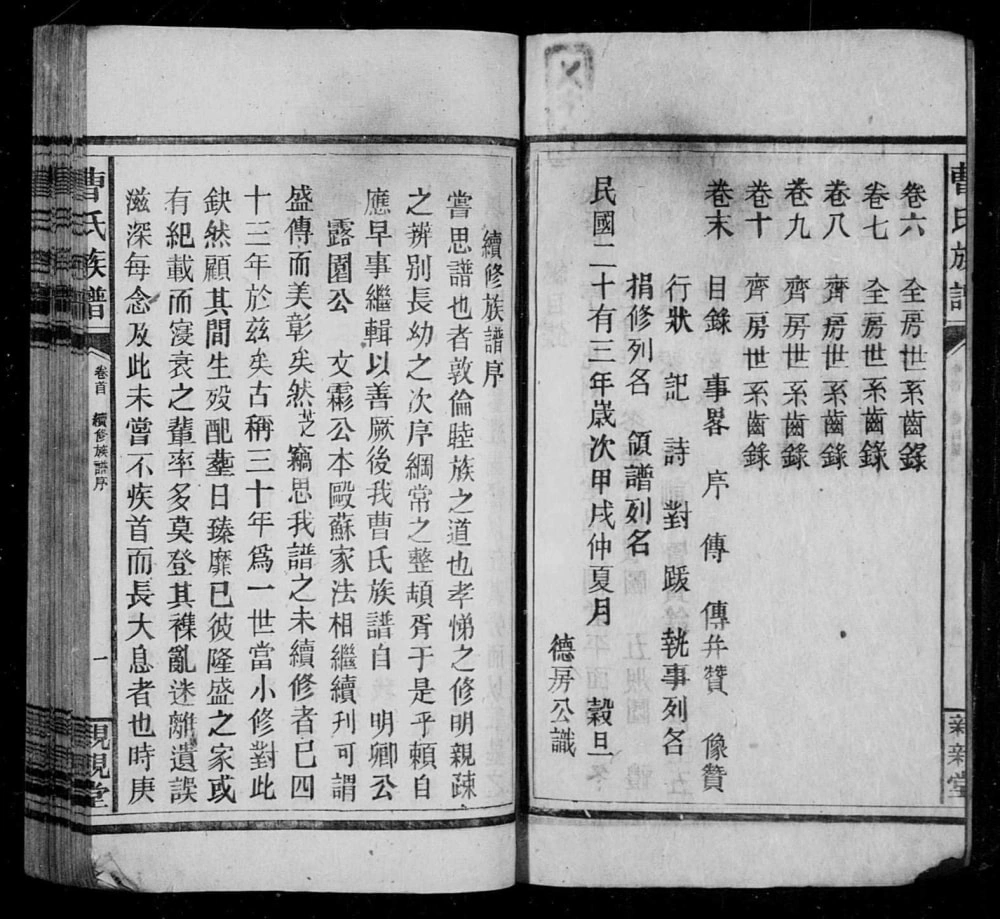 曹氏族譜
卷六 全房世系齒錄
卷七 全房世系齒錄
卷八 齊房世系齒錄
卷九 齊房世系齒錄
卷十 齊房世系齒錄
卷末 目錄 事畧 序 傳 傳幷贊 像贊
行狀 記 詩對 跋 執事列名
捐修列名 領譜列名
民國二十有三年歲次甲戌仲夏月 穀旦
德房公識
續修族譜序
嘗思譜也者敦倫睦族之道也孝悌之修明親疎
之辨別長幼之次序綱常之整頓胥于是乎賴自
應早事繼輯以善厥後我曹氏族譜自 明卿公
露園公 文霦公本歐蘇家法相繼續刋可謂
盛傳而美彰矣然芝竊思我譜之未續修者巳四
十三年於玆矣古稱三十年爲一世當小修對此
缺然顧其間生歿配塟日臻靡已彼隆盛之家或
有紀載而寖衰之輩率多莫登其襍亂迷離遺誤
滋深每念及此未嘗不疾首而長大息者也時庚
曹氏族譜
卷首
續修族譜序
一